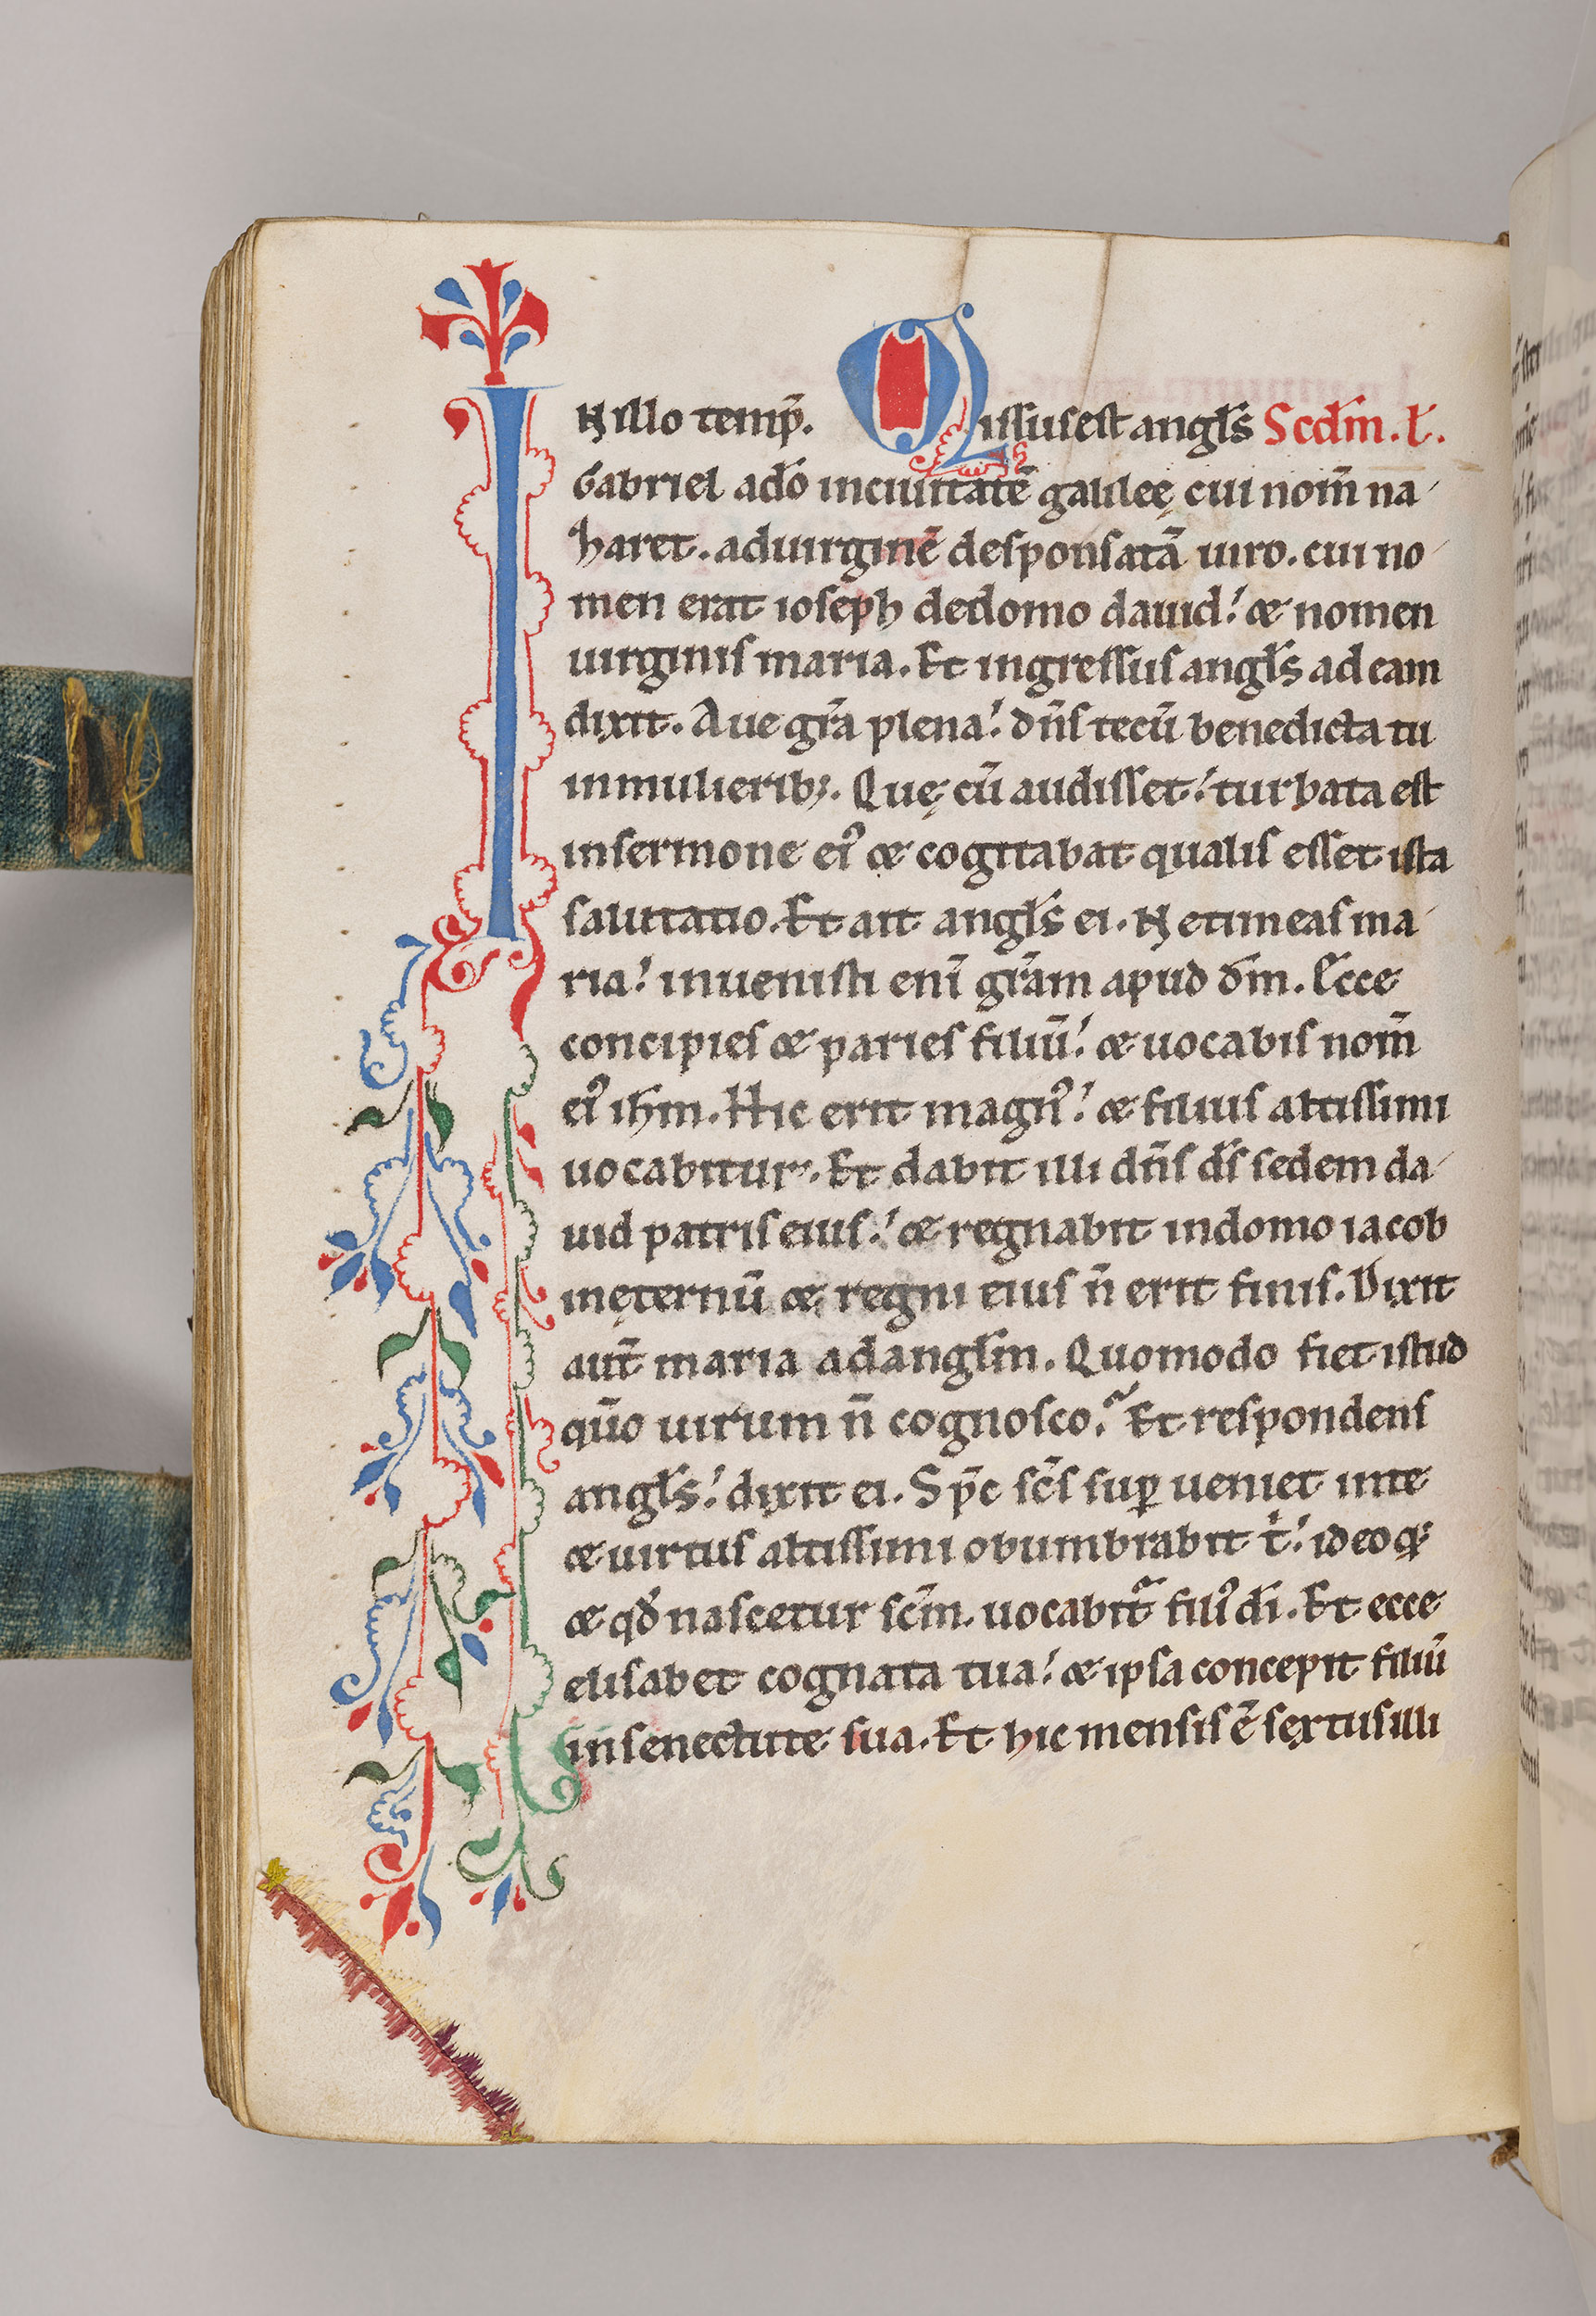 IN illo temp̃. Missus est angl̃s Scd̃m. l̃.
Gabriel a dõ in ciuitatẽ galileę cui nom̃ na
haret. ad uirginẽ desponsatã uiro. cui no
men erat ioseph de domo dauid. & nomen
uirginis maria. Et ingressus angl̃s ad eam
dixit. Aue gr̃a plena. dñs tecũ benedicta tu
in mulierib;. Quę cũ audisset. turbata est
in sermone ei᾽ & cogitabat qualis esset ista
salutatio. Et ait angl̃s ei. Ne timeas ma
ria. inuenisti enĩ gr̃am apud dm̃. Ecce
concipies & paries filiũ. & uocabis nom̃
ei᾽ ihm̃. Hic erit magn᾽. & filius altissimi
uocabitur. Et dabit illi dñs ds̃ sedem da
uid patris eius. & regnabit in domo iacob
in ęternũ & regni eius ñ erit finis. Dixit
aut̃ maria ad angl̃m. Quomodo fiet istud
qũo uirum ñ cognosco? Et respondens
angl̃s. dixit ei. Sp̃c sc̃s sup̱ ueniet in te
& uirtus altissimi obumbrabit t̉. ideoq;
& qđ nascetur sc̃m. uocabit᷑ fili᾽ dĩ. Et ecce
elisabet cognata tua. & ipsa concepit filiũ
in senectute sua. Et hic mensis ẽ sextus illi